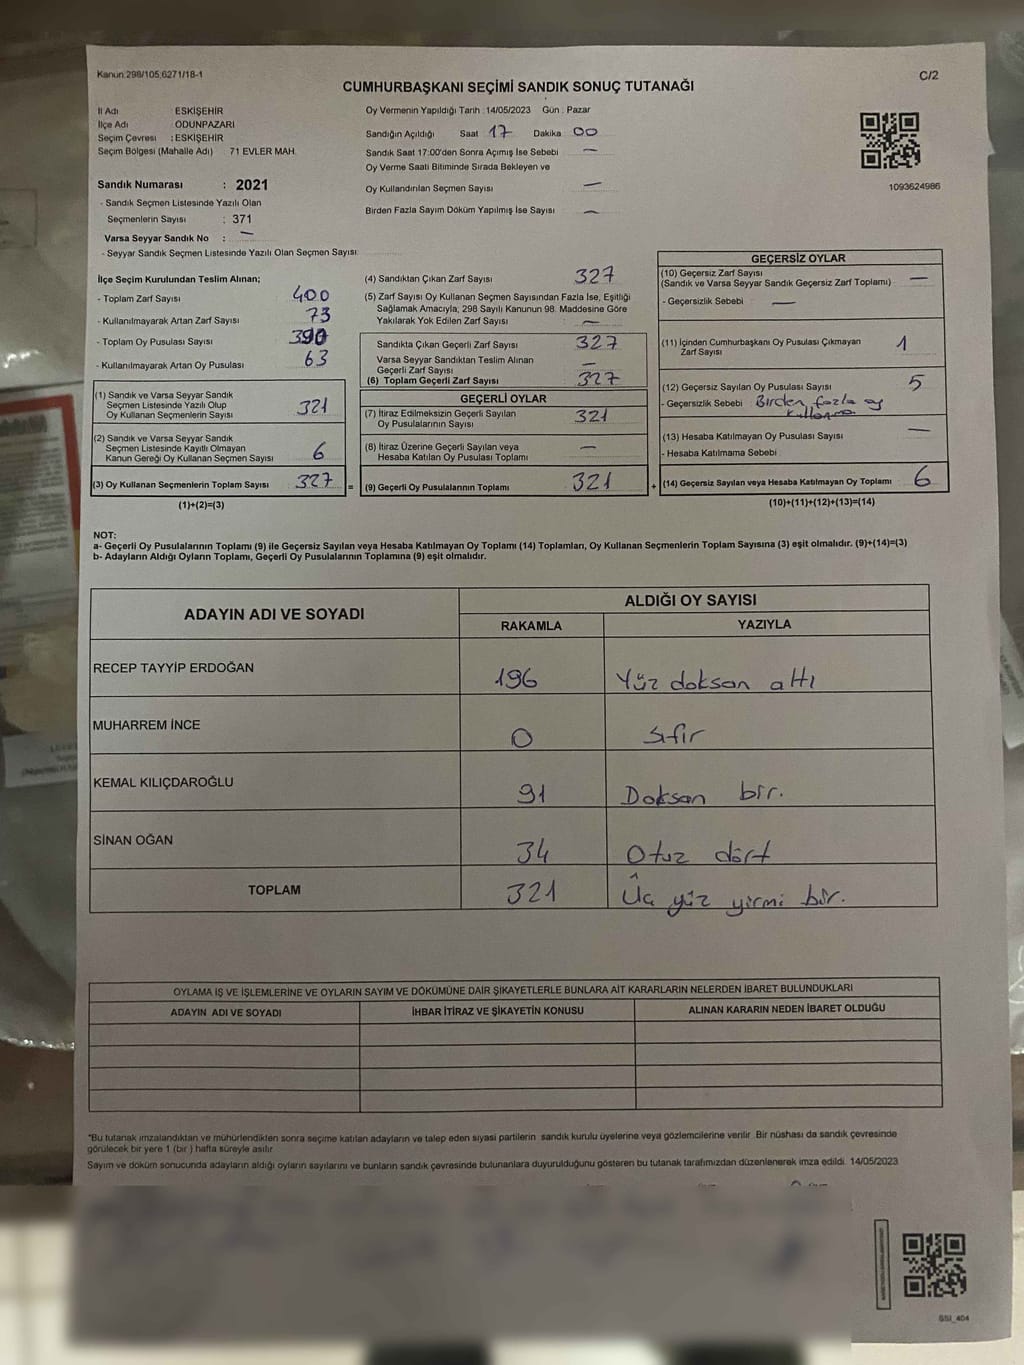 Kanun:298/105;6271/18-1
C/2
CUMHURBAŞKANI SEÇİMİ SANDIK SONUÇ TUTANAĞI
İl Adı : ESKİŞEHİR
İlçe Adı : ODUNPAZARI
Seçim Çevresi : ESKİŞEHİR
Seçim Bölgesi (Mahalle Adı) : 71 EVLER MAH.
Oy Vermenin Yapıldığı Tarih : 14/05/2023 Gün : Pazar
Sandığın Açıldığı Saat 17 Dakika 00
Sandık Saat 17:00'den Sonra Açımış İse Sebebi —
Oy Verme Saati Bitiminde Sırada Bekleyen ve
Oy Kullandırılan Seçmen Sayısı —
Birden Fazla Sayım Döküm Yapılmış İse Sayısı —
1093624986
Sandık Numarası : 2021
- Sandık Seçmen Listesinde Yazılı Olan
Seçmenlerin Sayısı : 371
Varsa Seyyar Sandık No : —
- Seyyar Sandık Seçmen Listesinde Yazılı Olan Seçmen Sayısı:
İlçe Seçim Kurulundan Teslim Alınan;
- Toplam Zarf Sayısı 400
- Kullanılmayarak Artan Zarf Sayısı 73
- Toplam Oy Pusulası Sayısı 390
- Kullanılmayarak Artan Oy Pusulası 63
(1) Sandık ve Varsa Seyyar Sandık
Seçmen Listesinde Yazılı Olup
Oy Kullanan Seçmenlerin Sayısı 321
(2) Sandık ve Varsa Seyyar Sandık
Seçmen Listesinde Kayıtlı Olmayan
Kanun Gereği Oy Kullanan Seçmen Sayısı 6
(3) Oy Kullanan Seçmenlerin Toplam Sayısı 327
(1)+(2)=(3)
(4) Sandıktan Çıkan Zarf Sayısı 327
(5) Zarf Sayısı Oy Kullanan Seçmen Sayısından Fazla İse, Eşitliği
Sağlamak Amacıyla; 298 Sayılı Kanunun 98. Maddesine Göre
Yakılarak Yok Edilen Zarf Sayısı : —
Sandıkta Çıkan Geçerli Zarf Sayısı 327
Varsa Seyyar Sandıktan Teslim Alınan
Geçerli Zarf Sayısı —
(6) Toplam Geçerli Zarf Sayısı 327
GEÇERLİ OYLAR
(7) İtiraz Edilmeksizin Geçerli Sayılan
Oy Pusulalarının Sayısı 321
(8) İtiraz Üzerine Geçerli Sayılan veya
Hesaba Katılan Oy Pusulası Toplamı —
= (9) Geçerli Oy Pusulalarının Toplamı 321 +
GEÇERSİZ OYLAR
(10) Geçersiz Zarf Sayısı
(Sandık ve Varsa Seyyar Sandık Geçersiz Zarf Toplamı) —
- Geçersizlik Sebebi : —
(11) İçinden Cumhurbaşkanı Oy Pusulası Çıkmayan
Zarf Sayısı 1
(12) Geçersiz Sayılan Oy Pusulası Sayısı 5
- Geçersizlik Sebebi : Birden fazla oy
kullanma
(13) Hesaba Katılmayan Oy Pusulası Sayısı —
- Hesaba Katılmama Sebebi :
(14) Geçersiz Sayılan veya Hesaba Katılmayan Oy Toplamı 6
(10)+(11)+(12)+(13)=(14)
NOT:
a- Geçerli Oy Pusulalarının Toplamı (9) ile Geçersiz Sayılan veya Hesaba Katılmayan Oy Toplamı (14) Toplamları, Oy Kullanan Seçmenlerin Toplam Sayısına (3) eşit olmalıdır. (9)+(14)=(3)
b- Adayların Aldığı Oyların Toplamı, Geçerli Oy Pusulalarının Toplamına (9) eşit olmalıdır.
ADAYIN ADI VE SOYADI
ALDIĞI OY SAYISI
RAKAMLA YAZIYLA
RECEP TAYYİP ERDOĞAN 196 Yüz doksan altı
MUHARREM İNCE 0 Sıfır
KEMAL KILIÇDAROĞLU 91 Doksan bir.
SİNAN OĞAN 34 Otuz dört
TOPLAM 321 Üç yüz yirmi bir.
OYLAMA İŞ VE İŞLEMLERİNE VE OYLARIN SAYIM VE DÖKÜMÜNE DAİR ŞİKAYETLERLE BUNLARA AİT KARARLARIN NELERDEN İBARET BULUNDUKLARI
ADAYIN ADI VE SOYADI İHBAR İTİRAZ VE ŞİKAYETİN KONUSU ALINAN KARARIN NEDEN İBARET OLDUĞU
*Bu tutanak imzalandıktan ve mühürlendikten sonra seçime katılan adayların ve talep eden siyasi partilerin sandık kurulu üyelerine veya gözlemcilerine verilir. Bir nüshası da sandık çevresinde
görülecek bir yere 1 (bir ) hafta süreyle asılır.
Sayım ve döküm sonucunda adayların aldığı oyların sayılarını ve bunların sandık çevresinde bulunanlara duyurulduğunu gösteren bu tutanak tarafımızdan düzenlenerek imza edildi. 14/05/2023
SSI_404